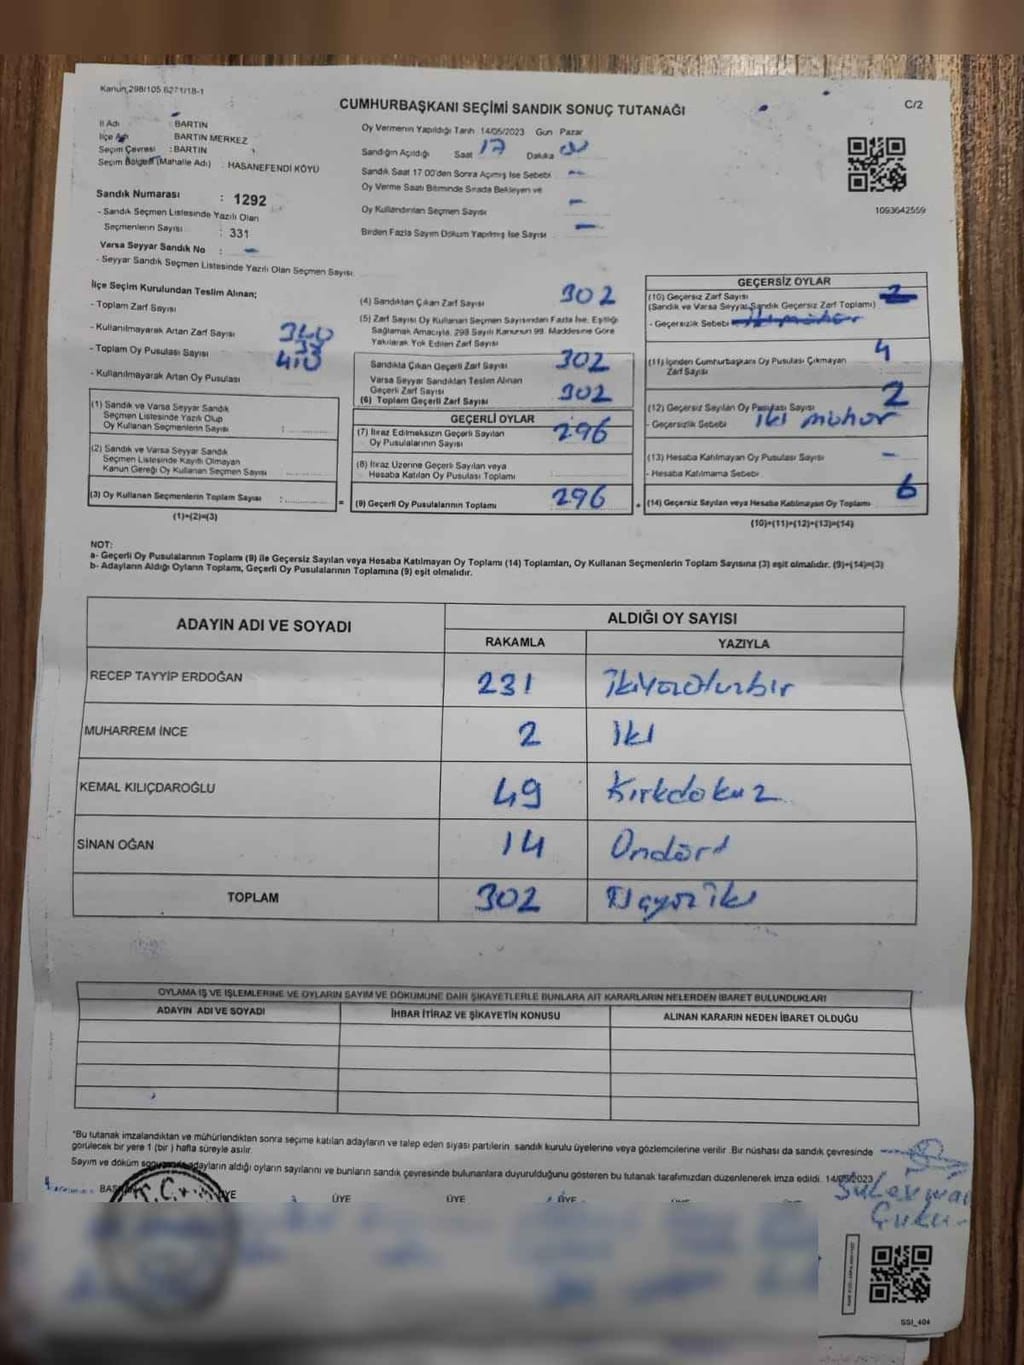 Kanun:298/105 6271/18-1
CUMHURBAŞKANI SEÇİMİ SANDIK SONUÇ TUTANAĞI
C/2
İl Adı BARTIN
İlçe Adı BARTIN MERKEZ
Seçim Çevresi : BARTIN
Seçim Bölgesi (Mahalle Adı) : HASANEFENDİ KÖYÜ
Sandık Numarası : 1292
- Sandık Seçmen Listesinde Yazılı Olan
Seçmenlerin Sayısı : 331
Varsa Seyyar Sandık No : -
- Seyyar Sandık Seçmen Listesinde Yazılı Olan Seçmen Sayısı
Oy Vermenin Yapıldığı Tarih 14/05/2023 Gün Pazar
Sandığın Açıldığı Saat 17 Dakika
Sandık Saat 17.00'den Sonra Açılmış İse Sebebi -
Oy Verme Saati Bitiminde Sırada Bekleyen ve
Oy Kullandırılan Seçmen Sayısı -
Birden Fazla Sayım Döküm Yapılmış İse Sayısı -
1093642559
İlçe Seçim Kurulundan Teslim Alınan;
- Toplam Zarf Sayısı 340
- Kullanılmayarak Artan Zarf Sayısı 38
- Toplam Oy Pusulası Sayısı 410
- Kullanılmayarak Artan Oy Pusulası
(1) Sandık ve Varsa Seyyar Sandık
Seçmen Listesinde Yazılı Olup
Oy Kullanan Seçmenlerin Sayısı :
(2) Sandık ve Varsa Seyyar Sandık
Seçmen Listesinde Kayıtlı Olmayan
Kanun Gereği Oy Kullanan Seçmen Sayısı
(3) Oy Kullanan Seçmenlerin Toplam Sayısı :
(1)+(2)=(3)
(4) Sandıktan Çıkan Zarf Sayısı 302
(5) Zarf Sayısı Oy Kullanan Seçmen Sayısından Fazla İse, Eşitliği
Sağlamak Amacıyla, 298 Sayılı Kanunun 99. Maddesine Göre
Yakılarak Yok Edilen Zarf Sayısı
Sandıkta Çıkan Geçerli Zarf Sayısı 302
Varsa Seyyar Sandıktan Teslim Alınan
Geçerli Zarf Sayısı
(6) Toplam Geçerli Zarf Sayısı 302
GEÇERLİ OYLAR
(7) İtiraz Edilmeksizin Geçerli Sayılan
Oy Pusulalarının Sayısı 296
(8) İtiraz Üzerine Geçerli Sayılan veya
Hesaba Katılan Oy Pusulası Toplamı
(9) Geçerli Oy Pusulalarının Toplamı 296
GEÇERSİZ OYLAR
(10) Geçersiz Zarf Sayısı 2
(Sandık ve Varsa Seyyar Sandık Geçersiz Zarf Toplamı)
- Geçersizlik Sebebi iki mühür
(11) İçinden Cumhurbaşkanı Oy Pusulası Çıkmayan
Zarf Sayısı : 4
(12) Geçersiz Sayılan Oy Pusulası Sayısı 2
- Geçersizlik Sebebi iki mühür
(13) Hesaba Katılmayan Oy Pusulası Sayısı -
- Hesaba Katılmama Sebebi
(14) Geçersiz Sayılan veya Hesaba Katılmayan Oy Toplamı 6
(10)+(11)+(12)+(13)=(14)
NOT:
a- Geçerli Oy Pusulalarının Toplamı (9) ile Geçersiz Sayılan veya Hesaba Katılmayan Oy Toplamı (14) Toplamları, Oy Kullanan Seçmenlerin Toplam Sayısına (3) eşit olmalıdır. (9)+(14)=(3)
b- Adayların Aldığı Oyların Toplamı, Geçerli Oy Pusulalarının Toplamına (9) eşit olmalıdır.
ADAYIN ADI VE SOYADI ALDIĞI OY SAYISI
RAKAMLA YAZIYLA
RECEP TAYYİP ERDOĞAN 231 ikiyüzotuzbir
MUHARREM İNCE 2 iki
KEMAL KILIÇDAROĞLU 49 Kırkdokuz
SİNAN OĞAN 14 Ondört
TOPLAM 302 Üçyüziki
OYLAMA İŞ VE İŞLEMLERİNE VE OYLARIN SAYIM VE DÖKÜMÜNE DAİR ŞİKAYETLERLE BUNLARA AİT KARARLARIN NELERDEN İBARET BULUNDUKLARI
ADAYIN ADI VE SOYADI İHBAR İTİRAZ VE ŞİKAYETİN KONUSU ALINAN KARARIN NEDEN İBARET OLDUĞU
"Bu tutanak imzalandıktan ve mühürlendikten sonra seçime katılan adayların ve talep eden siyasi partilerin sandık kurulu üyelerine veya gözlemcilerine verilir. Bir nüshası da sandık çevresinde
görülecek bir yere 1 (bir) hafta süreyle asılır.
Sayım ve döküm sonucunda adayların aldığı oyların sayılarını ve bunların sandık çevresinde bulunanlara duyurulduğunu gösteren bu tutanak tarafımızdan düzenlenerek imza edildi. 14/05/2023
T.C.
ÜYE ÜYE ÜYE ÜYE
Süleyman
SSI_404